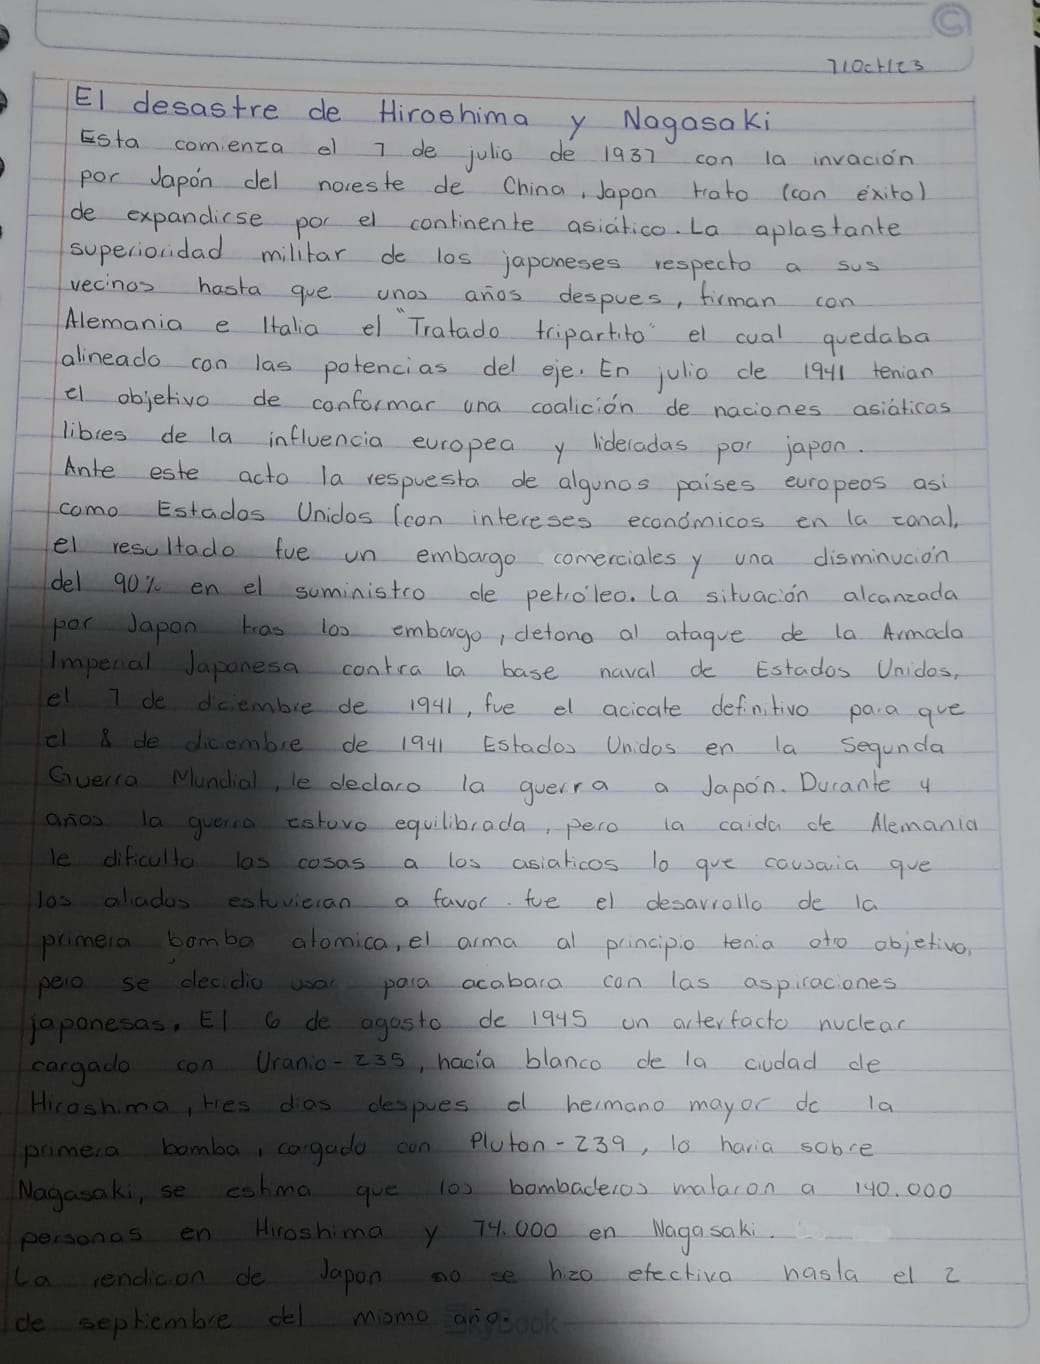 7/Oct/23
El desastre de Hiroshima y Nagasaki
Esta comienza el 7 de julio de 1937 con la invación
por Japón del noreste de China, Japon trato (con éxito)
de expandirse por el continente asiático. La aplastante
superioridad militar de los japoneses respecto a sus
vecinos hasta que unos años despues, firman con
Alemania e Italia el "Tratado tripartito" el cual quedaba
alineado con las potencias del eje. En julio de 1941 tenian
el objetivo de conformar una coalición de naciones asiáticas
libres de la influencia europea y lideradas por japon.
Ante este acto la respuesta de algunos países europeos asi
como Estados Unidos (con intereses económicos en la zona),
el resultado fue un embargo comerciales y una disminución
del 90% en el suministro de petróleo. La situación alcanzada
por Japon tras los embargo, detono al ataque de la Armada
Imperial Japonesa contra la base naval de Estados Unidos,
el 7 de diciembre de 1941, fue el acicate definitivo para que
el 8 de dicembre de 1941 Estados Unidos en la Segunda
Guerra Mundial, le declaro la guerra a Japón. Durante 4
años la guerra estuvo equilibrada, pero la caida de Alemania
le dificulto las cosas a los asiaticos lo que causaria que
los aliados estuvieran a favor. fue el desarrollo de la
primera bomba atomica, el arma al principio tenia otro objetivo,
pero se decidio usar para acabara con las aspiraciones
japonesas. El 6 de agosto de 1945 un arterfacto nuclear
cargado con Uranio-235, hacía blanco de la ciudad de
Hiroshima, tres dias despues el hermano mayor de la
primera bomba, cargado con Pluton-239, lo haria sobre
Nagasaki, se estima que los bombaderos mataron a 140.000
personas en Hiroshima y 74.000 en Nagasaki.
La rendicion de Japon no se hizo efectiva hasta el 2
de septiembre del mismo año.
SkyBook